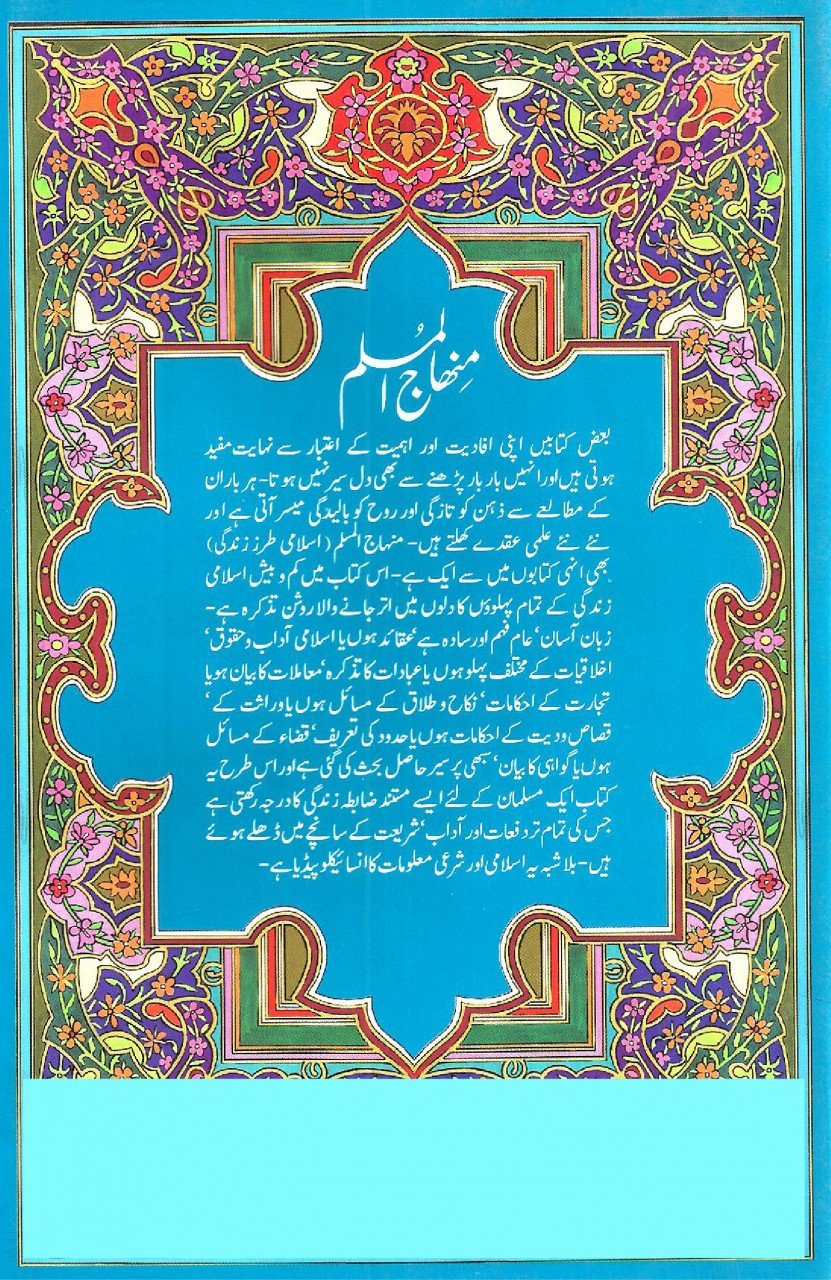 منہاج المُسلم
بعض کتابیں اپنی افادیت اور اہمیت کے اعتبار سے نہایت مفید
ہوتی ہیں اور انہیں بار بار پڑھنے سے بھی دل سیر نہیں ہوتا- ہر بار ان
کے مطالعے سے ذہن کو تازگی اور روح کو بالیدگی میسر آتی ہے اور
نئے نئے علمی عقدے کھلتے ہیں- منہاج المسلم (اسلامی طرز زندگی)
بھی انہی کتابوں میں سے ایک ہے- اس کتاب میں کم و بیش اسلامی
زندگی کے تمام پہلوؤں کا دلوں میں اتر جانے والا روشن تذکرہ ہے-
زبان آسان‘ عام فہم اور سادہ ہے‘ عقائد ہوں یا اسلامی آداب و حقوق‘
اخلاقیات کے مختلف پہلو ہوں یا عبادات کا تذکرہ‘ معاملات کا بیان ہو یا
تجارت کے احکامات‘ نکاح و طلاق کے مسائل ہوں یا وراثت کے‘
قصاص و دیت کے احکامات ہوں یا حدود کی تعریف‘ قضاء کے مسائل
ہوں یا گواہی کا بیان‘ سبھی پر سیر حاصل بحث کی گئی ہے اور اس طرح یہ
کتاب ایک مسلمان کے لئے ایسے مستند ضابطہ زندگی کا درجہ رکھتی ہے
جس کی تمام تر دفعات اور آداب‘ شریعت کے سانچے میں ڈھلے ہوئے
ہیں- بلاشبہ یہ اسلامی اور شرعی معلومات کا انسائیکلوپیڈیا ہے-